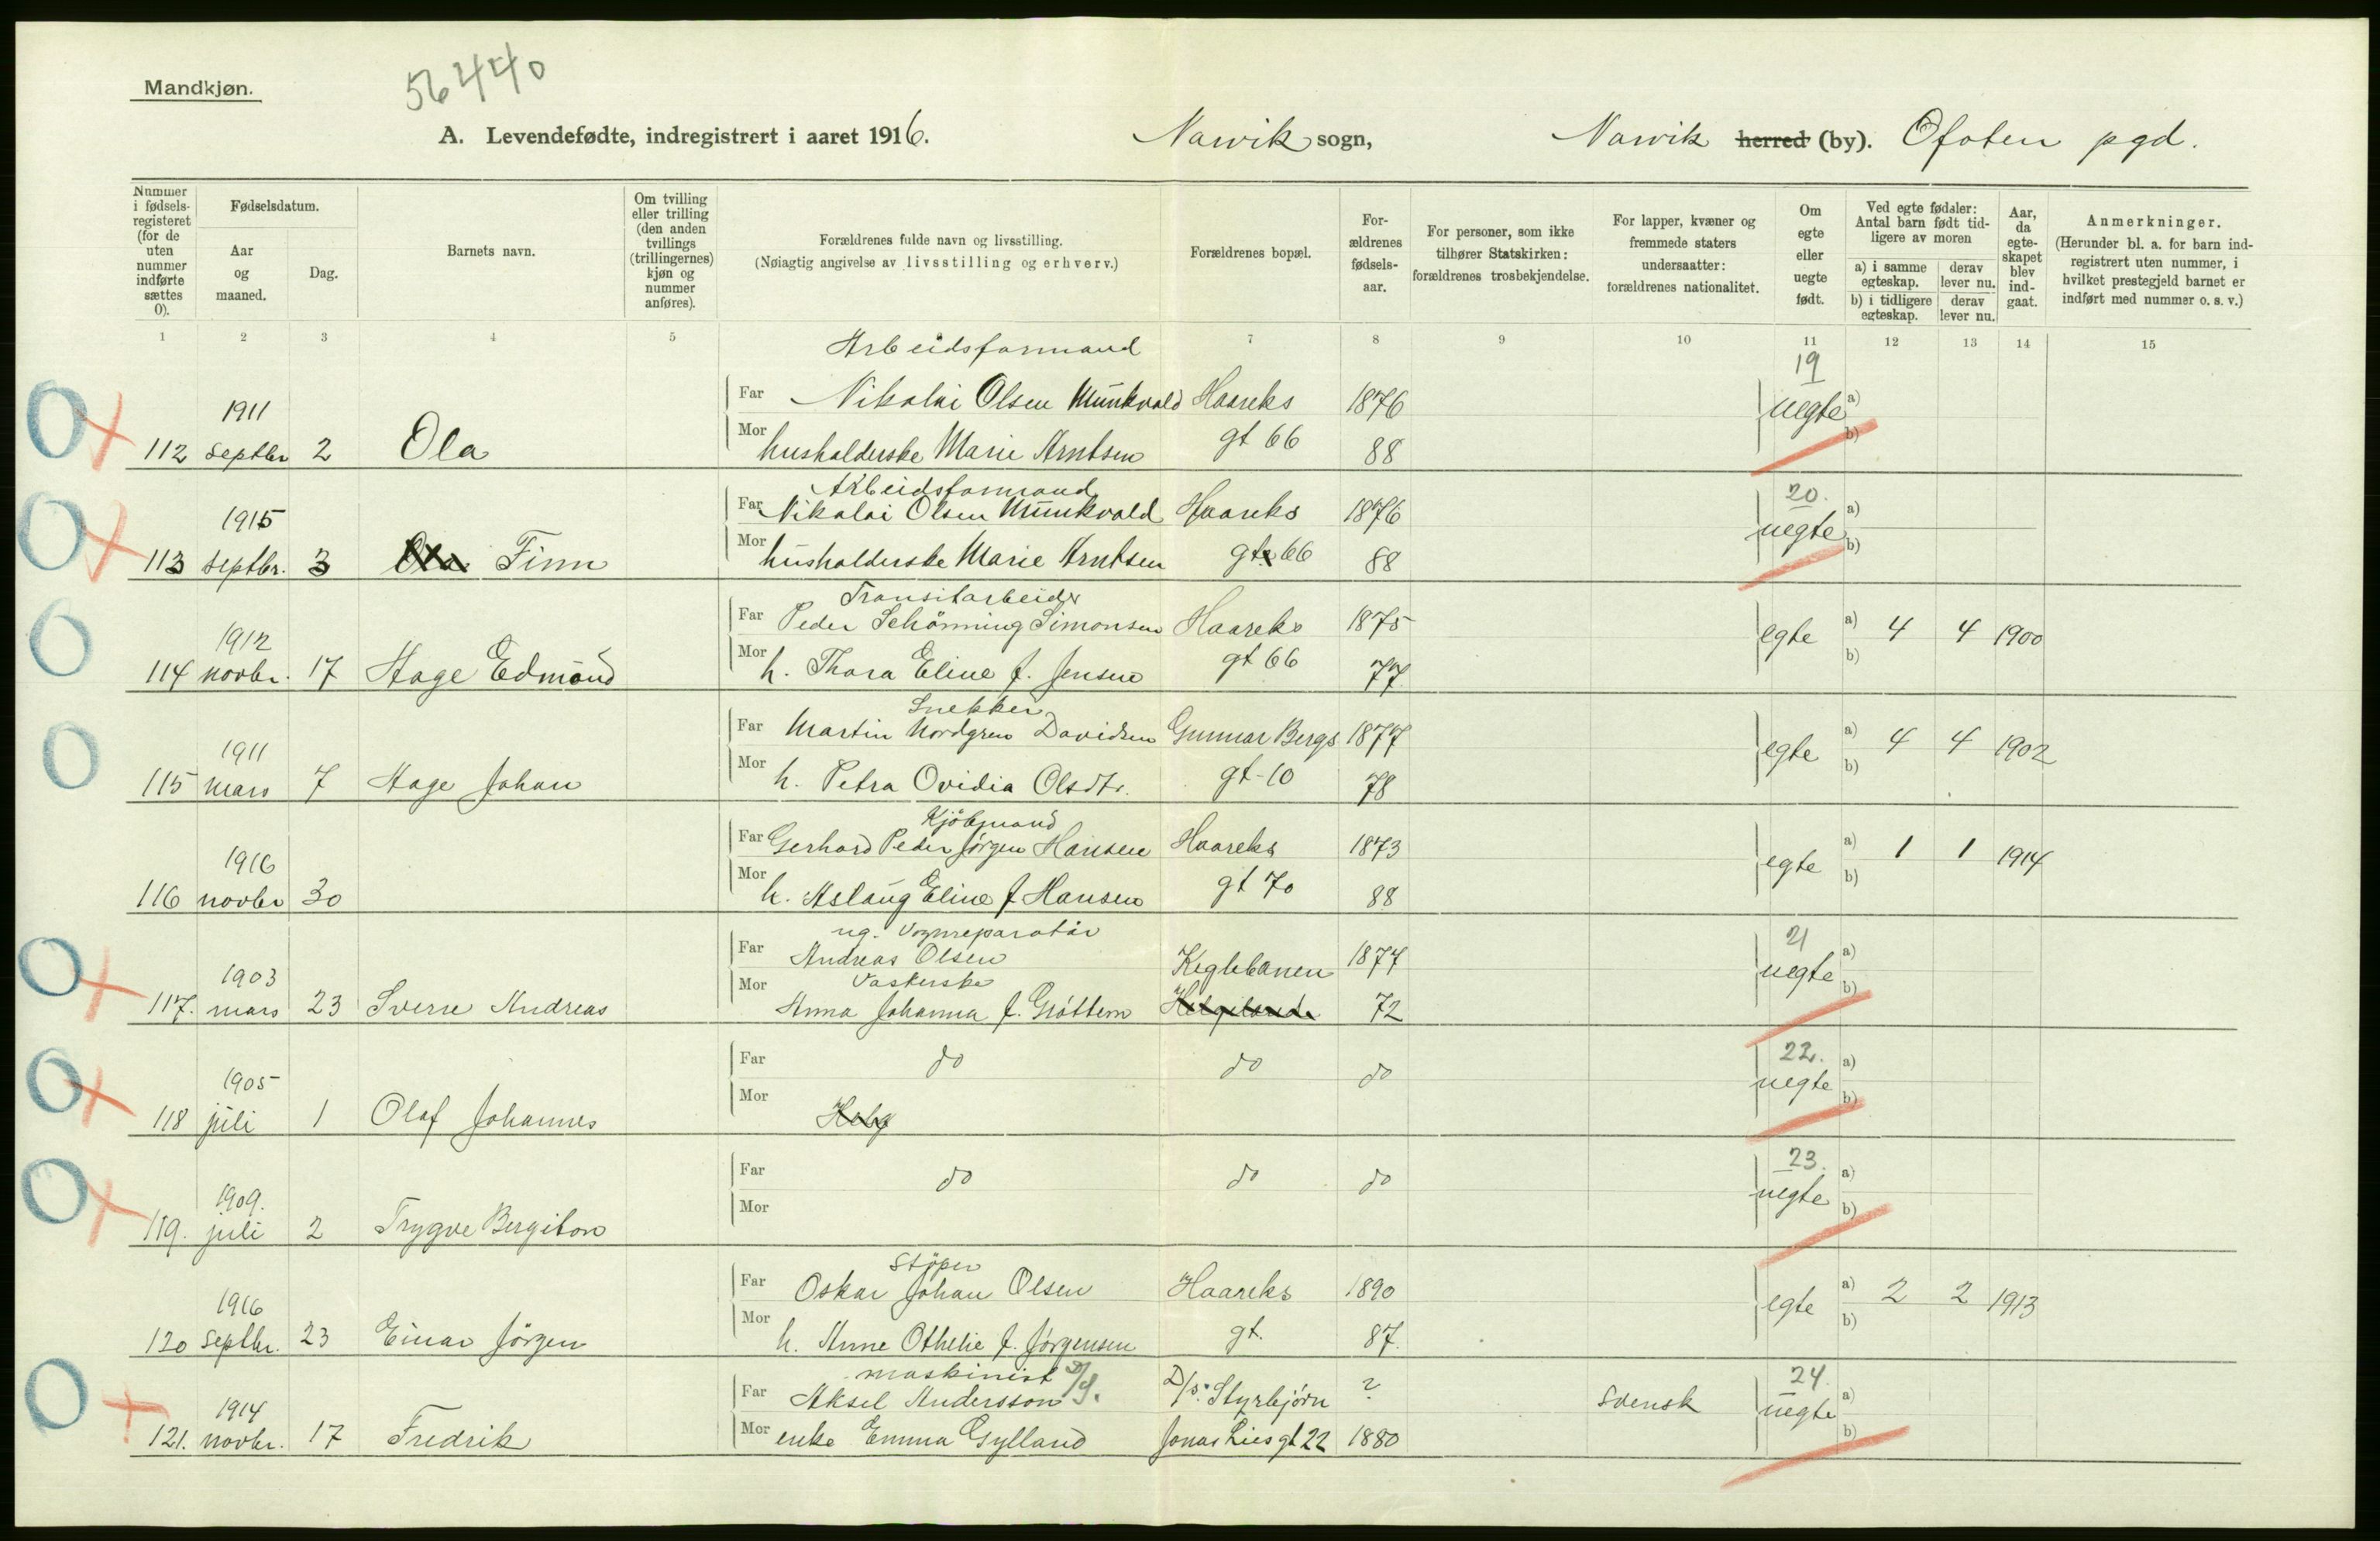 Mandkjøn.
56440
A. Levendefødte, indregistrert i aaret 1916. Narvik sogn, Narvik herred (by). Ofoten pgd.
Nummer i fødsels-registeret (for de uten nummer indførte sættes 0).
Fødselsdatum.
Aar og maaned.
Dag.
Barnets navn.
Om tvilling eller trilling (den anden tvillings (trillingernes) kjøn og nummer anføres).
Forældrenes fulde navn og livsstilling.
(Nøiagtig angivelse av livsstilling og erhverv.)
Forældrenes bopæl.
For-ældrenes fødsels-aar.
For personer, som ikke tilhører Statskirken: forældrenes trosbekjendelse.
For lapper, kvæner og fremmede staters undersaatter: forældrenes nationalitet.
Om egte eller uegte født.
Ved egte fødsler: Antal barn født tid-ligere av moren
a) i samme egteskap. derav lever nu.
b) i tidligere egteskap. derav lever nu.
Aar, da egte-skapet blev ind-gaat.
Anmerkninger.
(Herunder bl. a. for barn ind-registrert uten nummer, i hvilket prestegjeld barnet er indført med nummer o. s. v.)
1 2 3 4 5 7 8 9 10 11 12 13 14 15
Arbeidsformand 19
1911 Far Nikolai Olsen Munkvold Haareks 1876 uegte a)
112 septbr 2 Ola Mor husholderske Marie Arntsen gt 66 88 b)
Arbeidsformand 20.
1915 Far Nikolai Olsen Munkvold Haareks 1876 uegte a)
113 septbr. 3 Ola Finn Mor husholderske Marie Arntsen gt 66 88 b)
Transitarbeider
1912 Far Peder Schönning Simonsen Haareks 1875 egte a) 4 4 1900
114 novbr. 17 Hage Edmund Mor h. Thora Eline f. Jensen gt 66 77 b)
Snekker
1911 Far Martin Nordgren Davidsen Gunnar Bergs 1877 egte a) 4 4 1902
115 mars 7 Hage Johan Mor h. Petra Ovidia Olsdtr. gt-10 78 b)
Kjöbmand
1916 Far Gerhard Peder Jörgen Hansen Haareks 1873 egte a) 1 1 1914
116 novbr 30 Mor h. Aslaug Eline f Hansen gt 70 88 b)
ug. Vognreparatör 21
1903 Far Andreas Olsen Keglebanen 1877 uegte a)
Vaskerske
117. mars 23 Sverre Andreas Mor Anna Johanna f. Gröttem 72 b)
22.
1905 Far do do do uegte a)
118 juli 1 Olaf Johannes Mor Helg b)
23.
1909. Far do do do uegte a)
119. juli 2 Trygve Bergiton Mor b)
Stöper
1916 Far Oskar Johan Olsen Haareks 1890 egte a) 2 2 1913
120 septbr. 23 Einar Jörgen Mor h. Anne Othelie f. Jörgensen gt. 87 b)
maskinist 24.
1914 Far Aksel Andersson D/s. Styrbjörn ? Svensk uegte a)
121. novbr. 17 Fredrik Mor enke Emma Gylland Jonas Lies gt 22 1880 b)